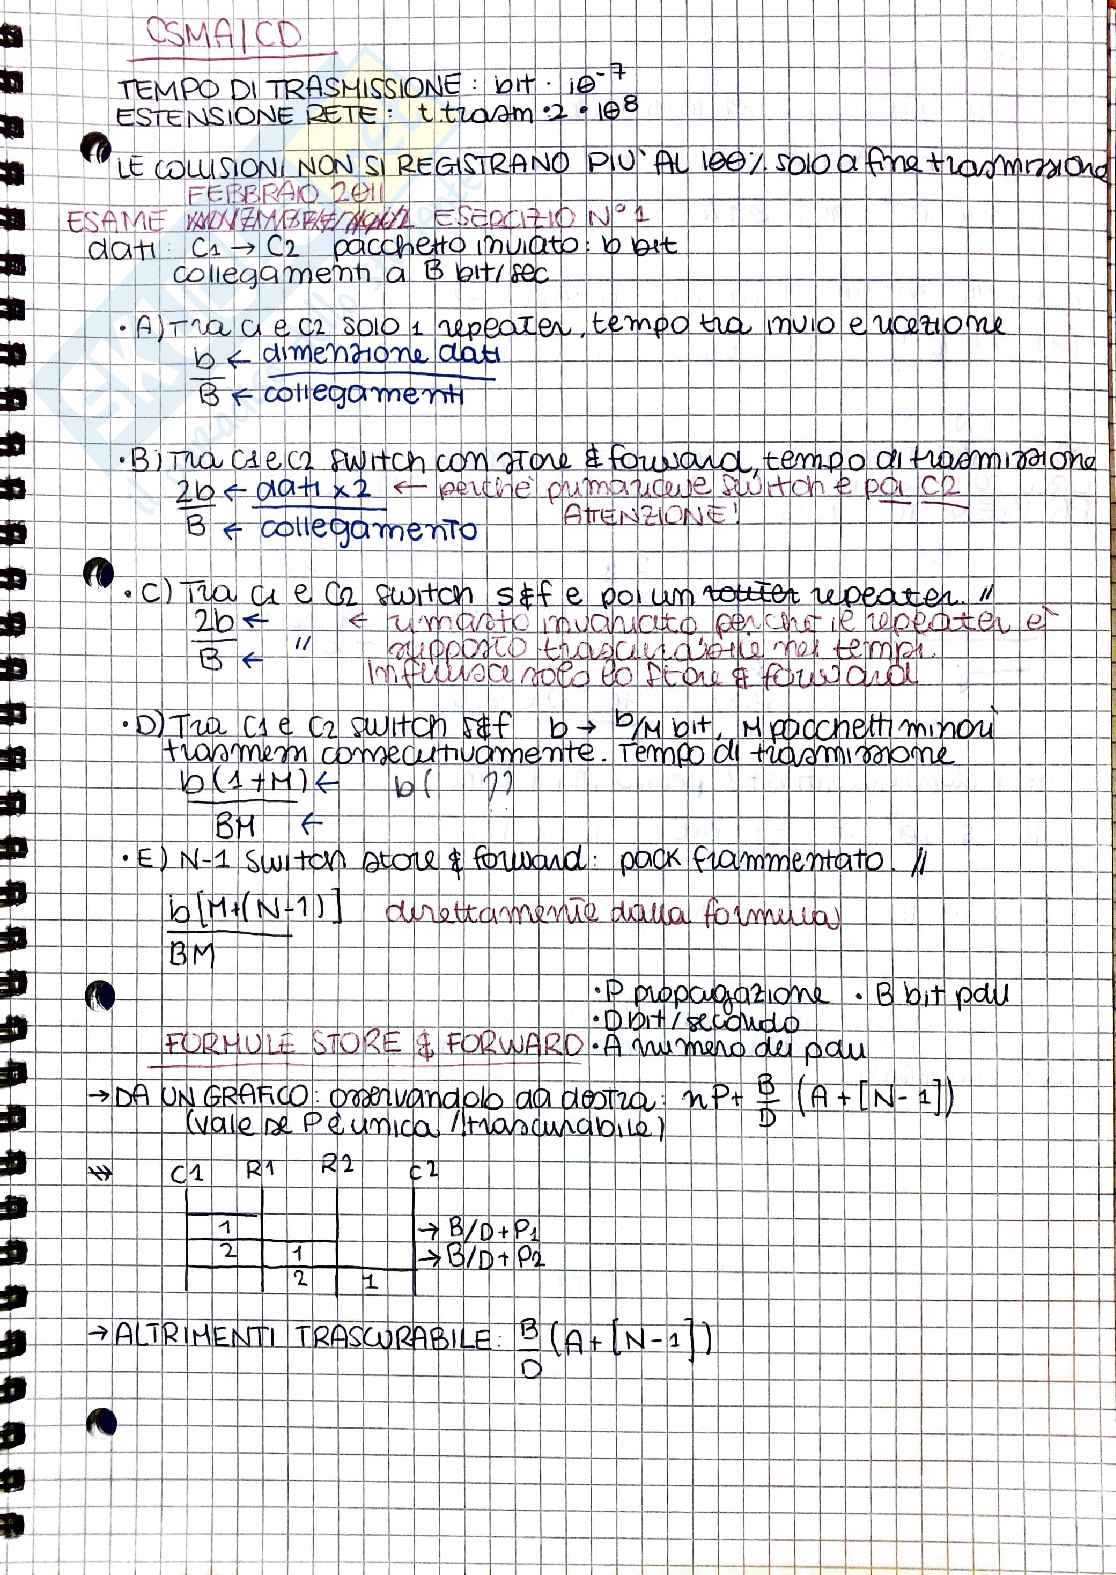 CSMA/CD
TEMPO DI TRASMISSIONE: bit · 10⁻⁷
ESTENSIONE RETE: t trasm · 2 · 10⁸
LE COLLISIONI NON SI REGISTRANO PIU' AL 100% solo a fine trasmissione
FEBBRAIO 2011
ESAME ESERCIZIO N°1
dati: C1 → C2 pacchetto inviato: b bit
collegamenti a B bit/sec
· A) Tra C1 e C2 solo 1 repeater, tempo tra invio e ricezione
b ← dimenzione dati
B ← collegamenti
· B) Tra C1 e C2 switch con store & forward, tempo di trasmissione
2b ← dati x 2 ← perché prima riceve switch e poi C2
B ← collegamento ATTENZIONE!
· C) Tra C1 e C2 switch s&f e poi un router repeater. //
2b ← ← rimasto invariato perché il repeater è
B ← // supposto trascurabile nei tempi.
Influisce solo lo store & forward
· D) Tra C1 e C2 switch s&f b → b/M bit, M pacchetti minori
trasmessi consecutivamente. Tempo di trasmissione
b(1+M) ← b( ??
BM ←
· E) N-1 switch store & forward: pack frammentato. //
b[M+(N-1)] direttamente dalla formula
BM
· P propagazione · B bit pdu
· D bit/secondo
FORMULE STORE & FORWARD · A numero dei pdu
→ DA UN GRAFICO: osservandolo da destra: nP + B/D (A + [N-1])
(vale se P è unica // trascurabile)
C1 R1 R2 C2
1 → B/D + P1
2 1 → B/D + P2
2 1
→ ALTRIMENTI TRASCURABILE: B/D (A + [N-1])